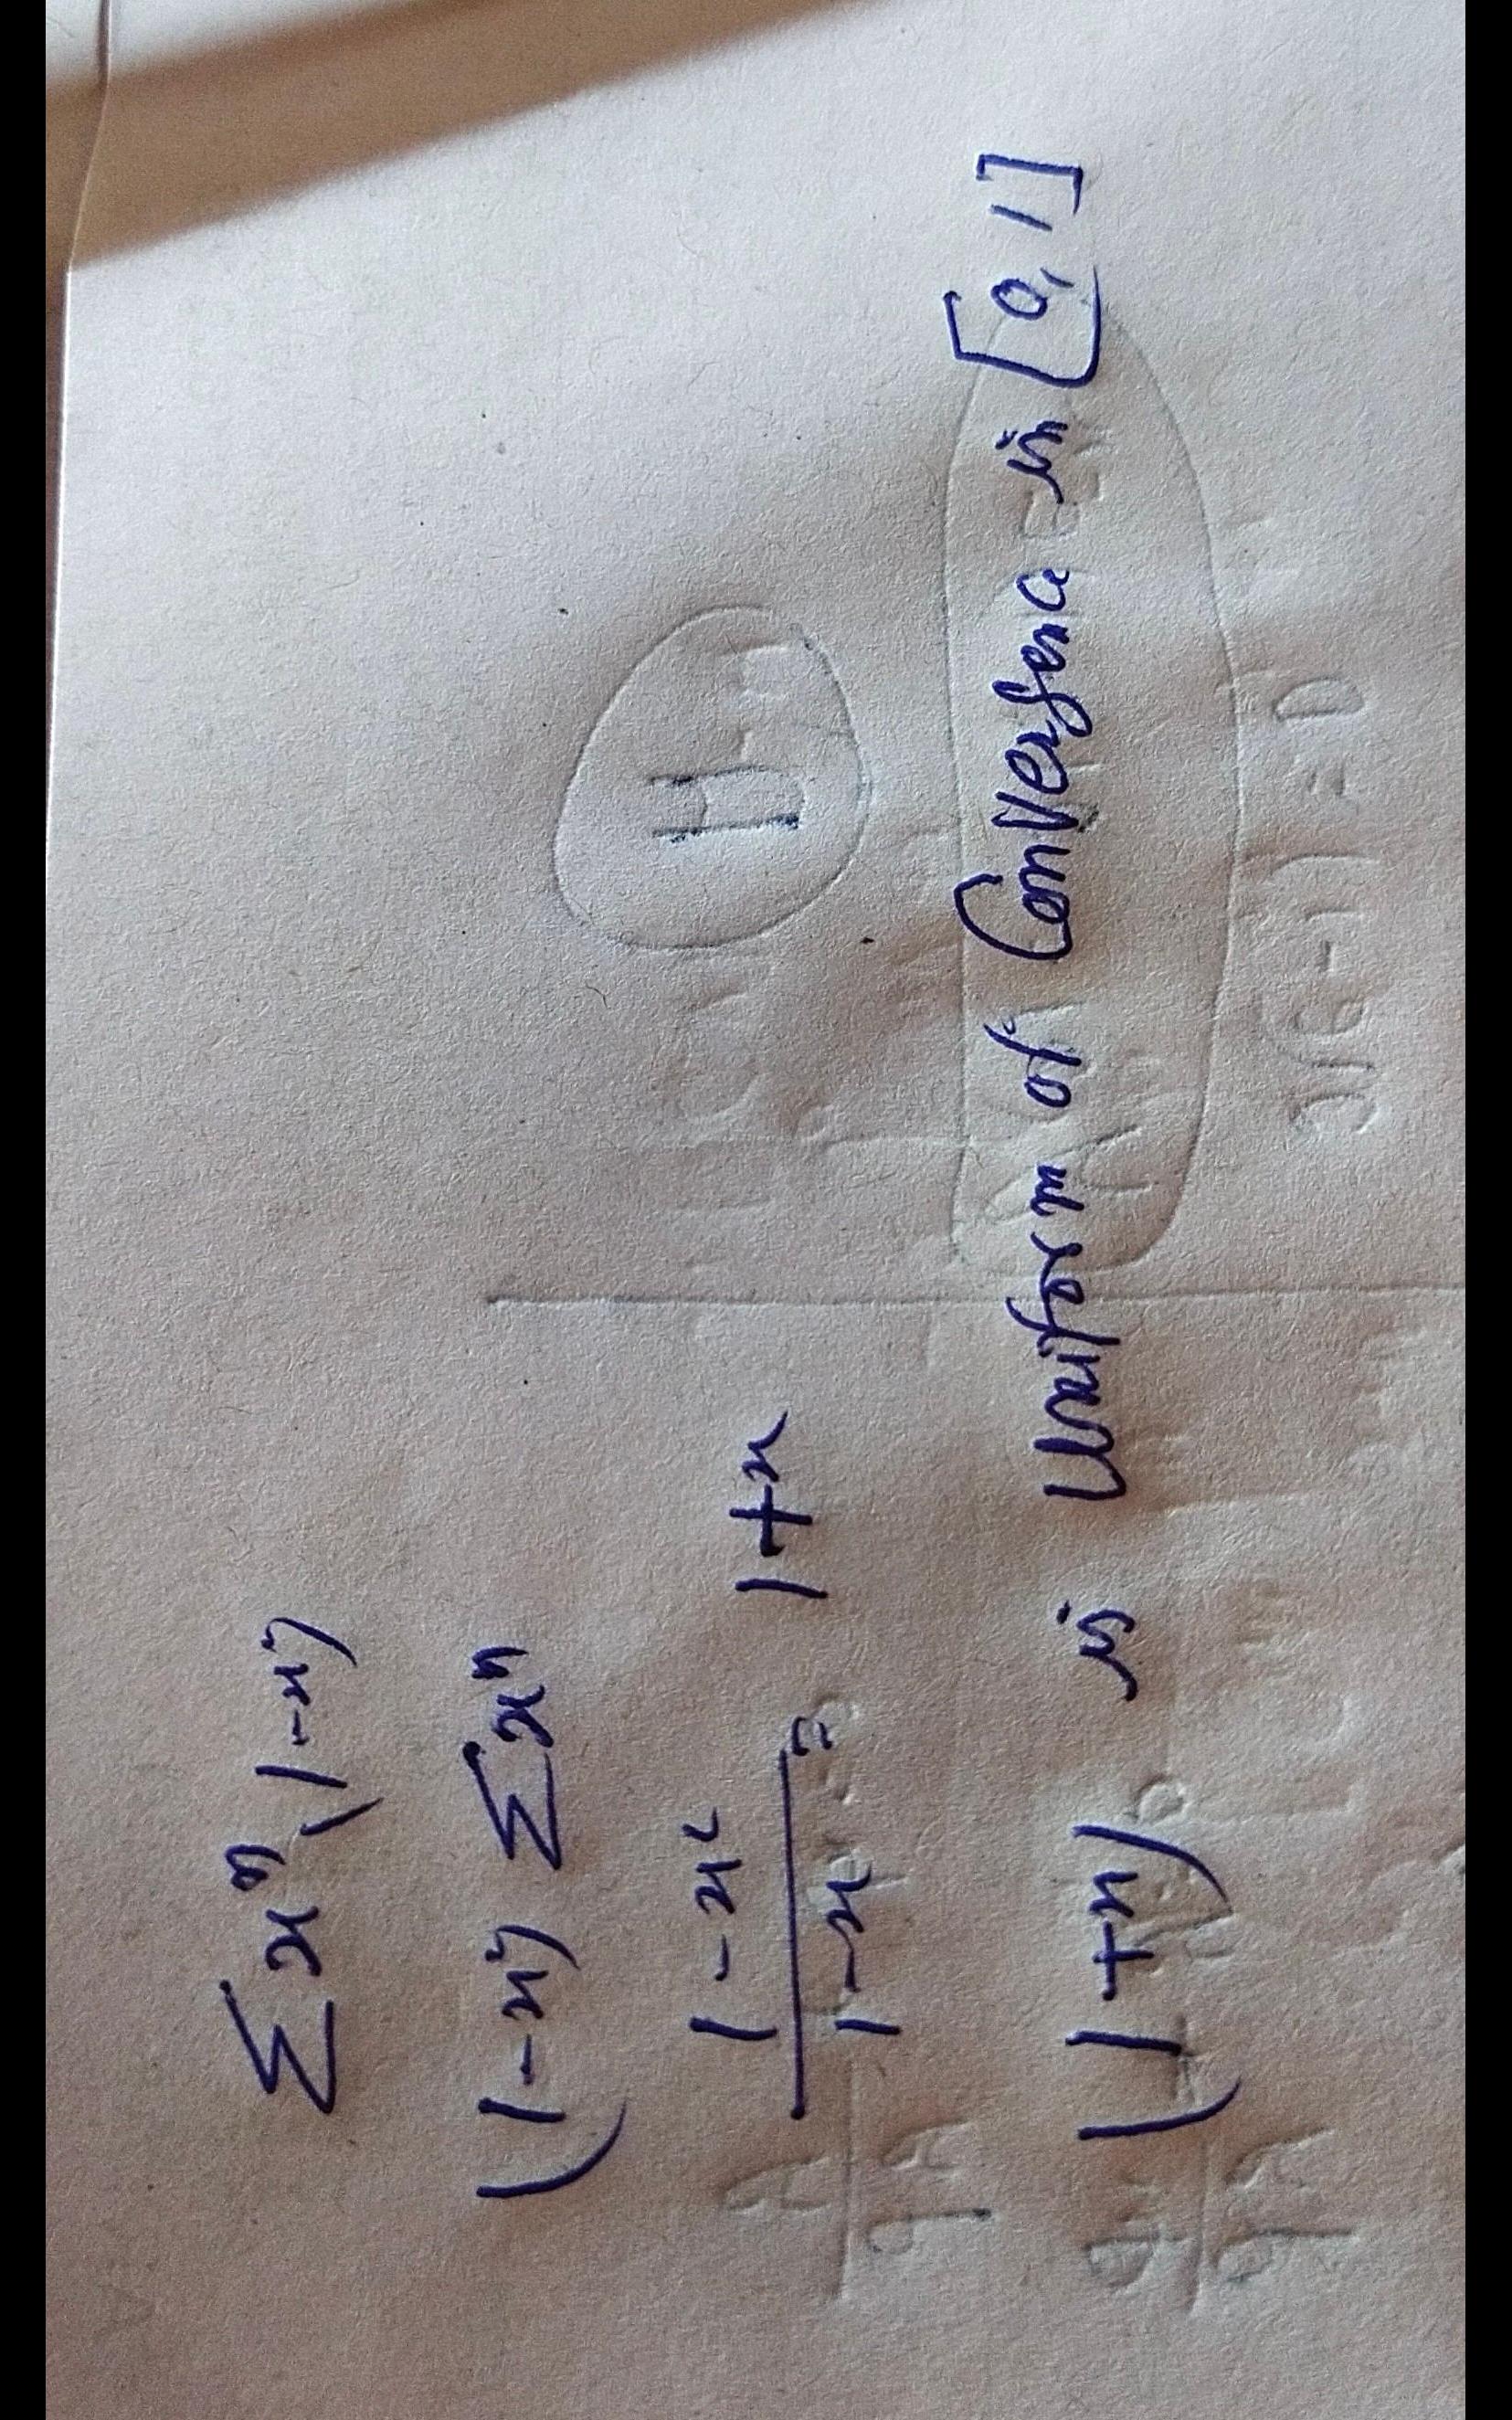 Σ xⁿ (1-x²)
(1-x²) Σ xⁿ
1-x²
1-x = 1+x
(1+x) is Uniform of Convergence in [0, 1]